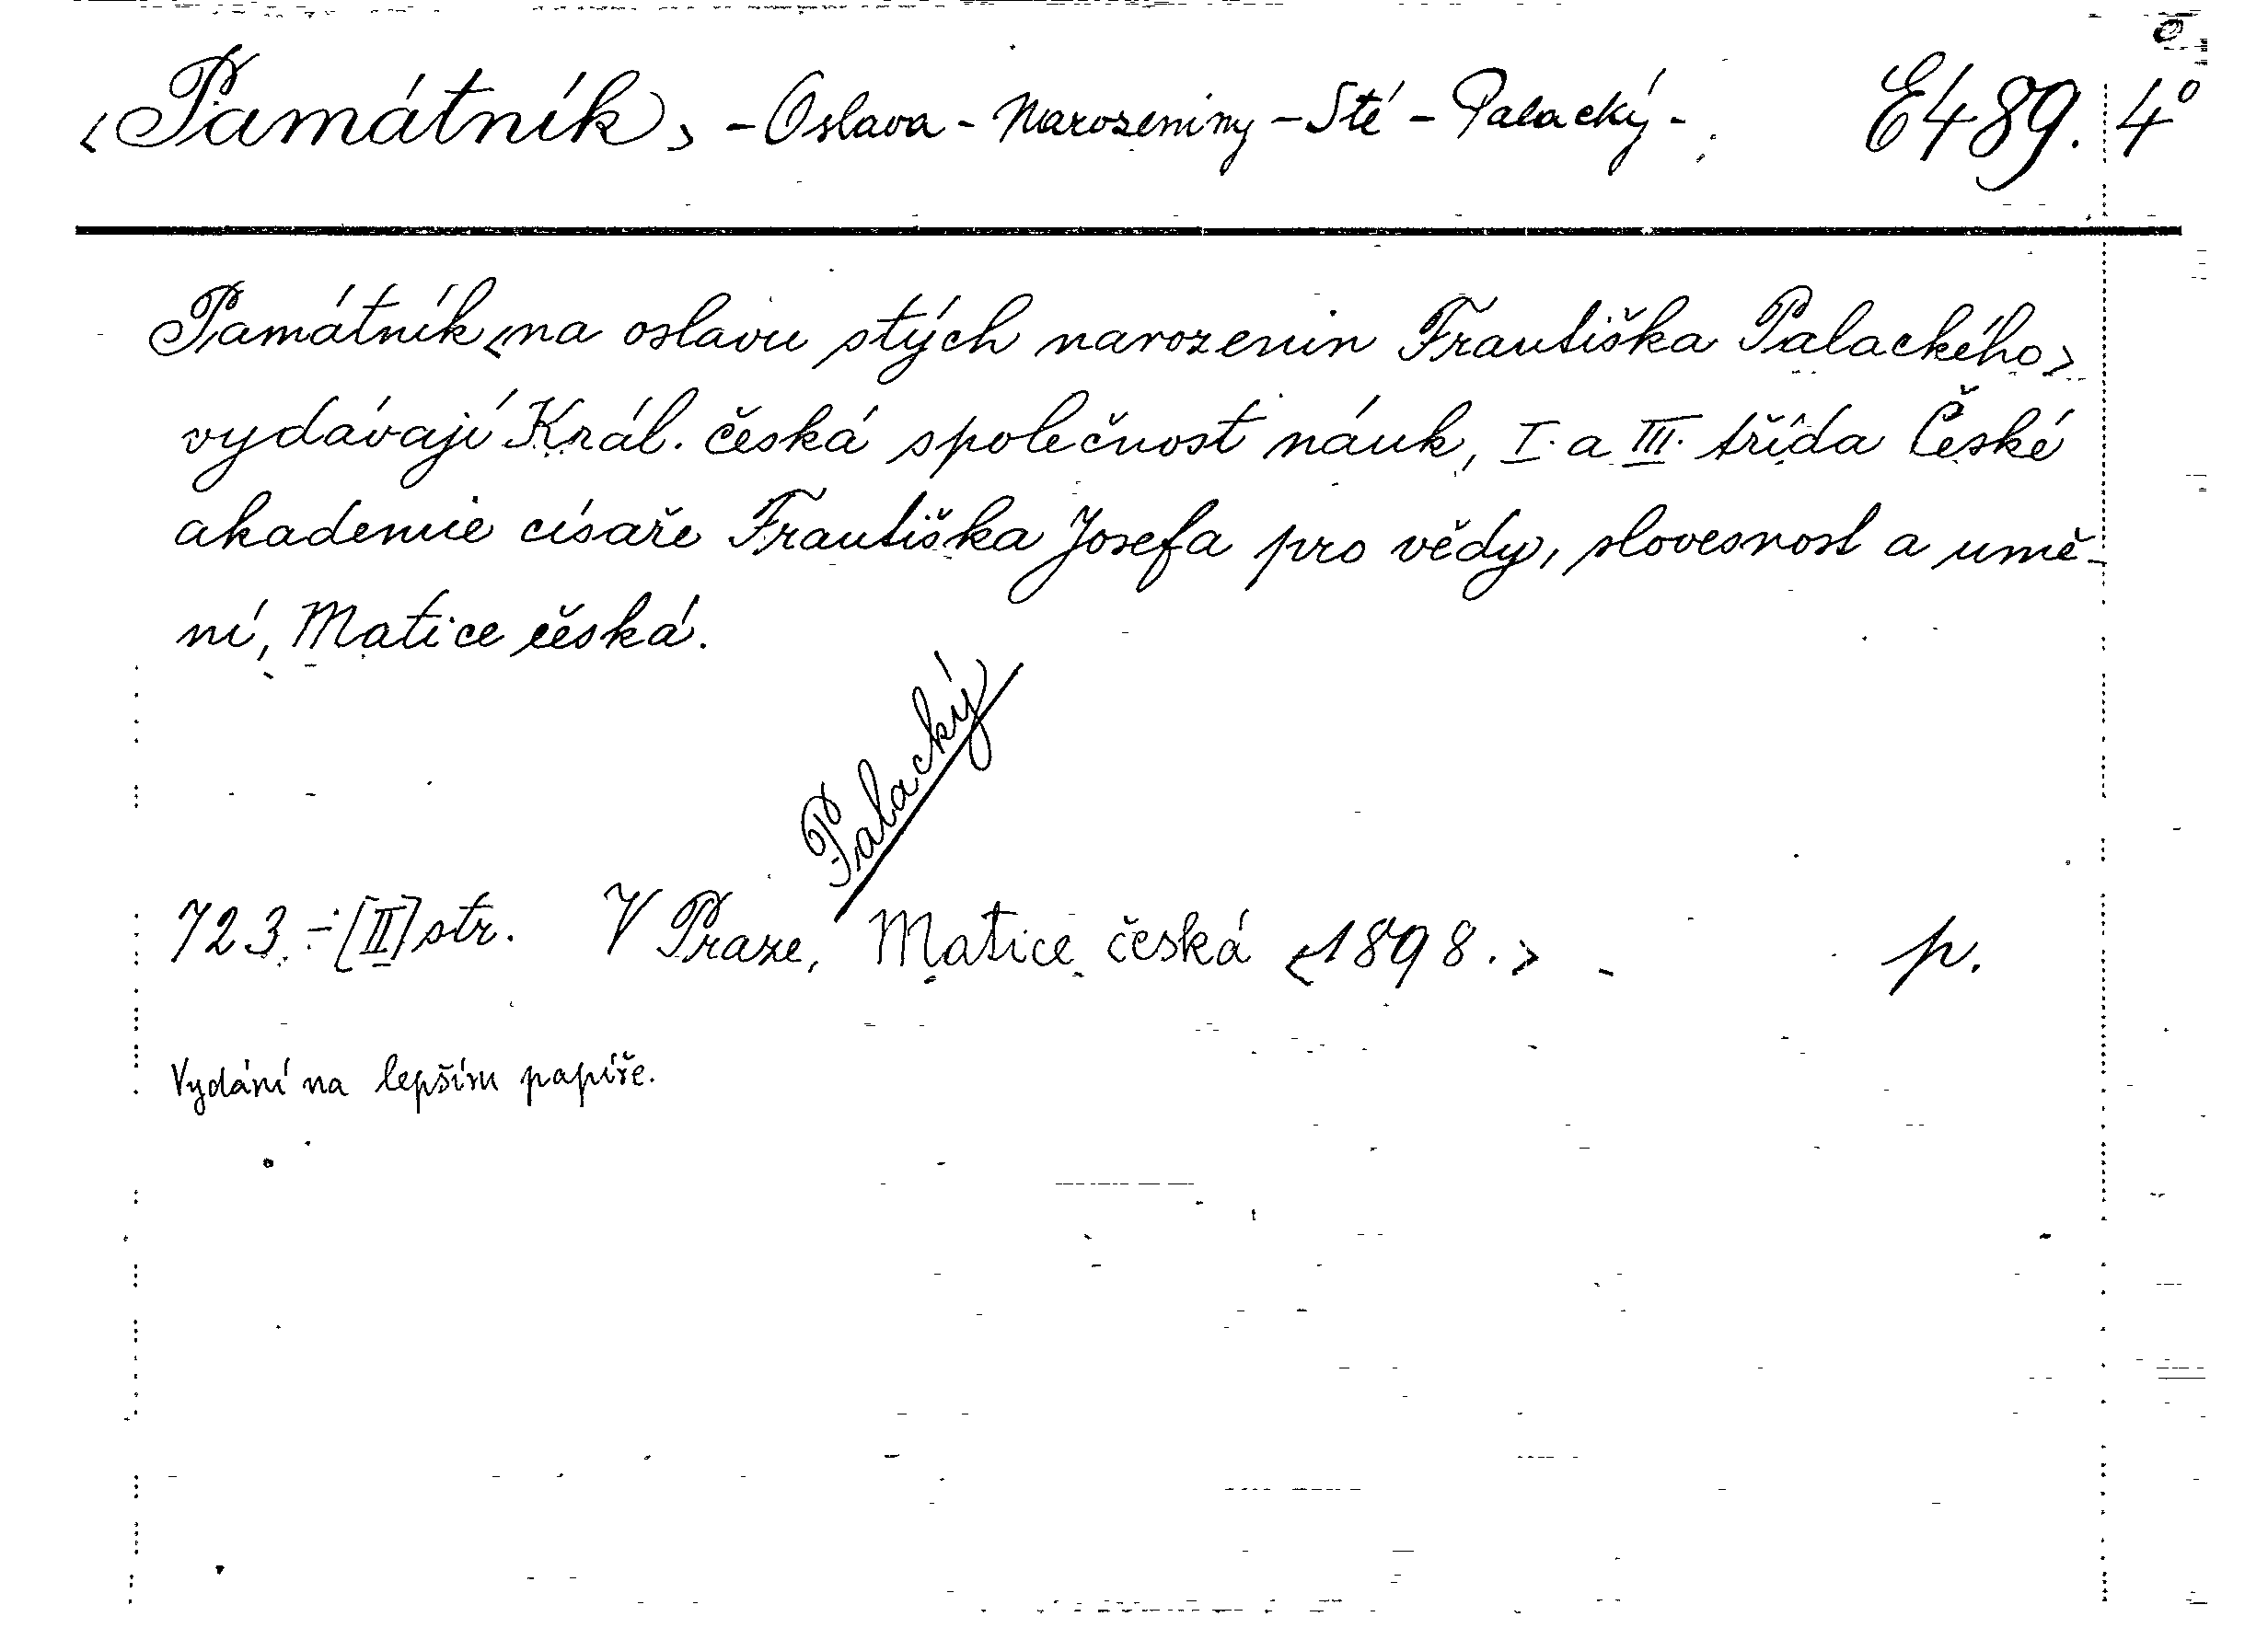 <Památník> - Oslava - Narozeniny - Sté - Palacký - E 489. 4°
Památník <na oslavu stých narozenin Františka Palackého>
vydávají Král. česká společnost náuk, I. a III. třída České
akademie císaře Františka Josefa pro vědy, slovesnost a umě-
ní, Matice česká.
Palacký
723 - [II] str. V Praze, Matice česká <1898.> p.
Vydání na lepším papíře.